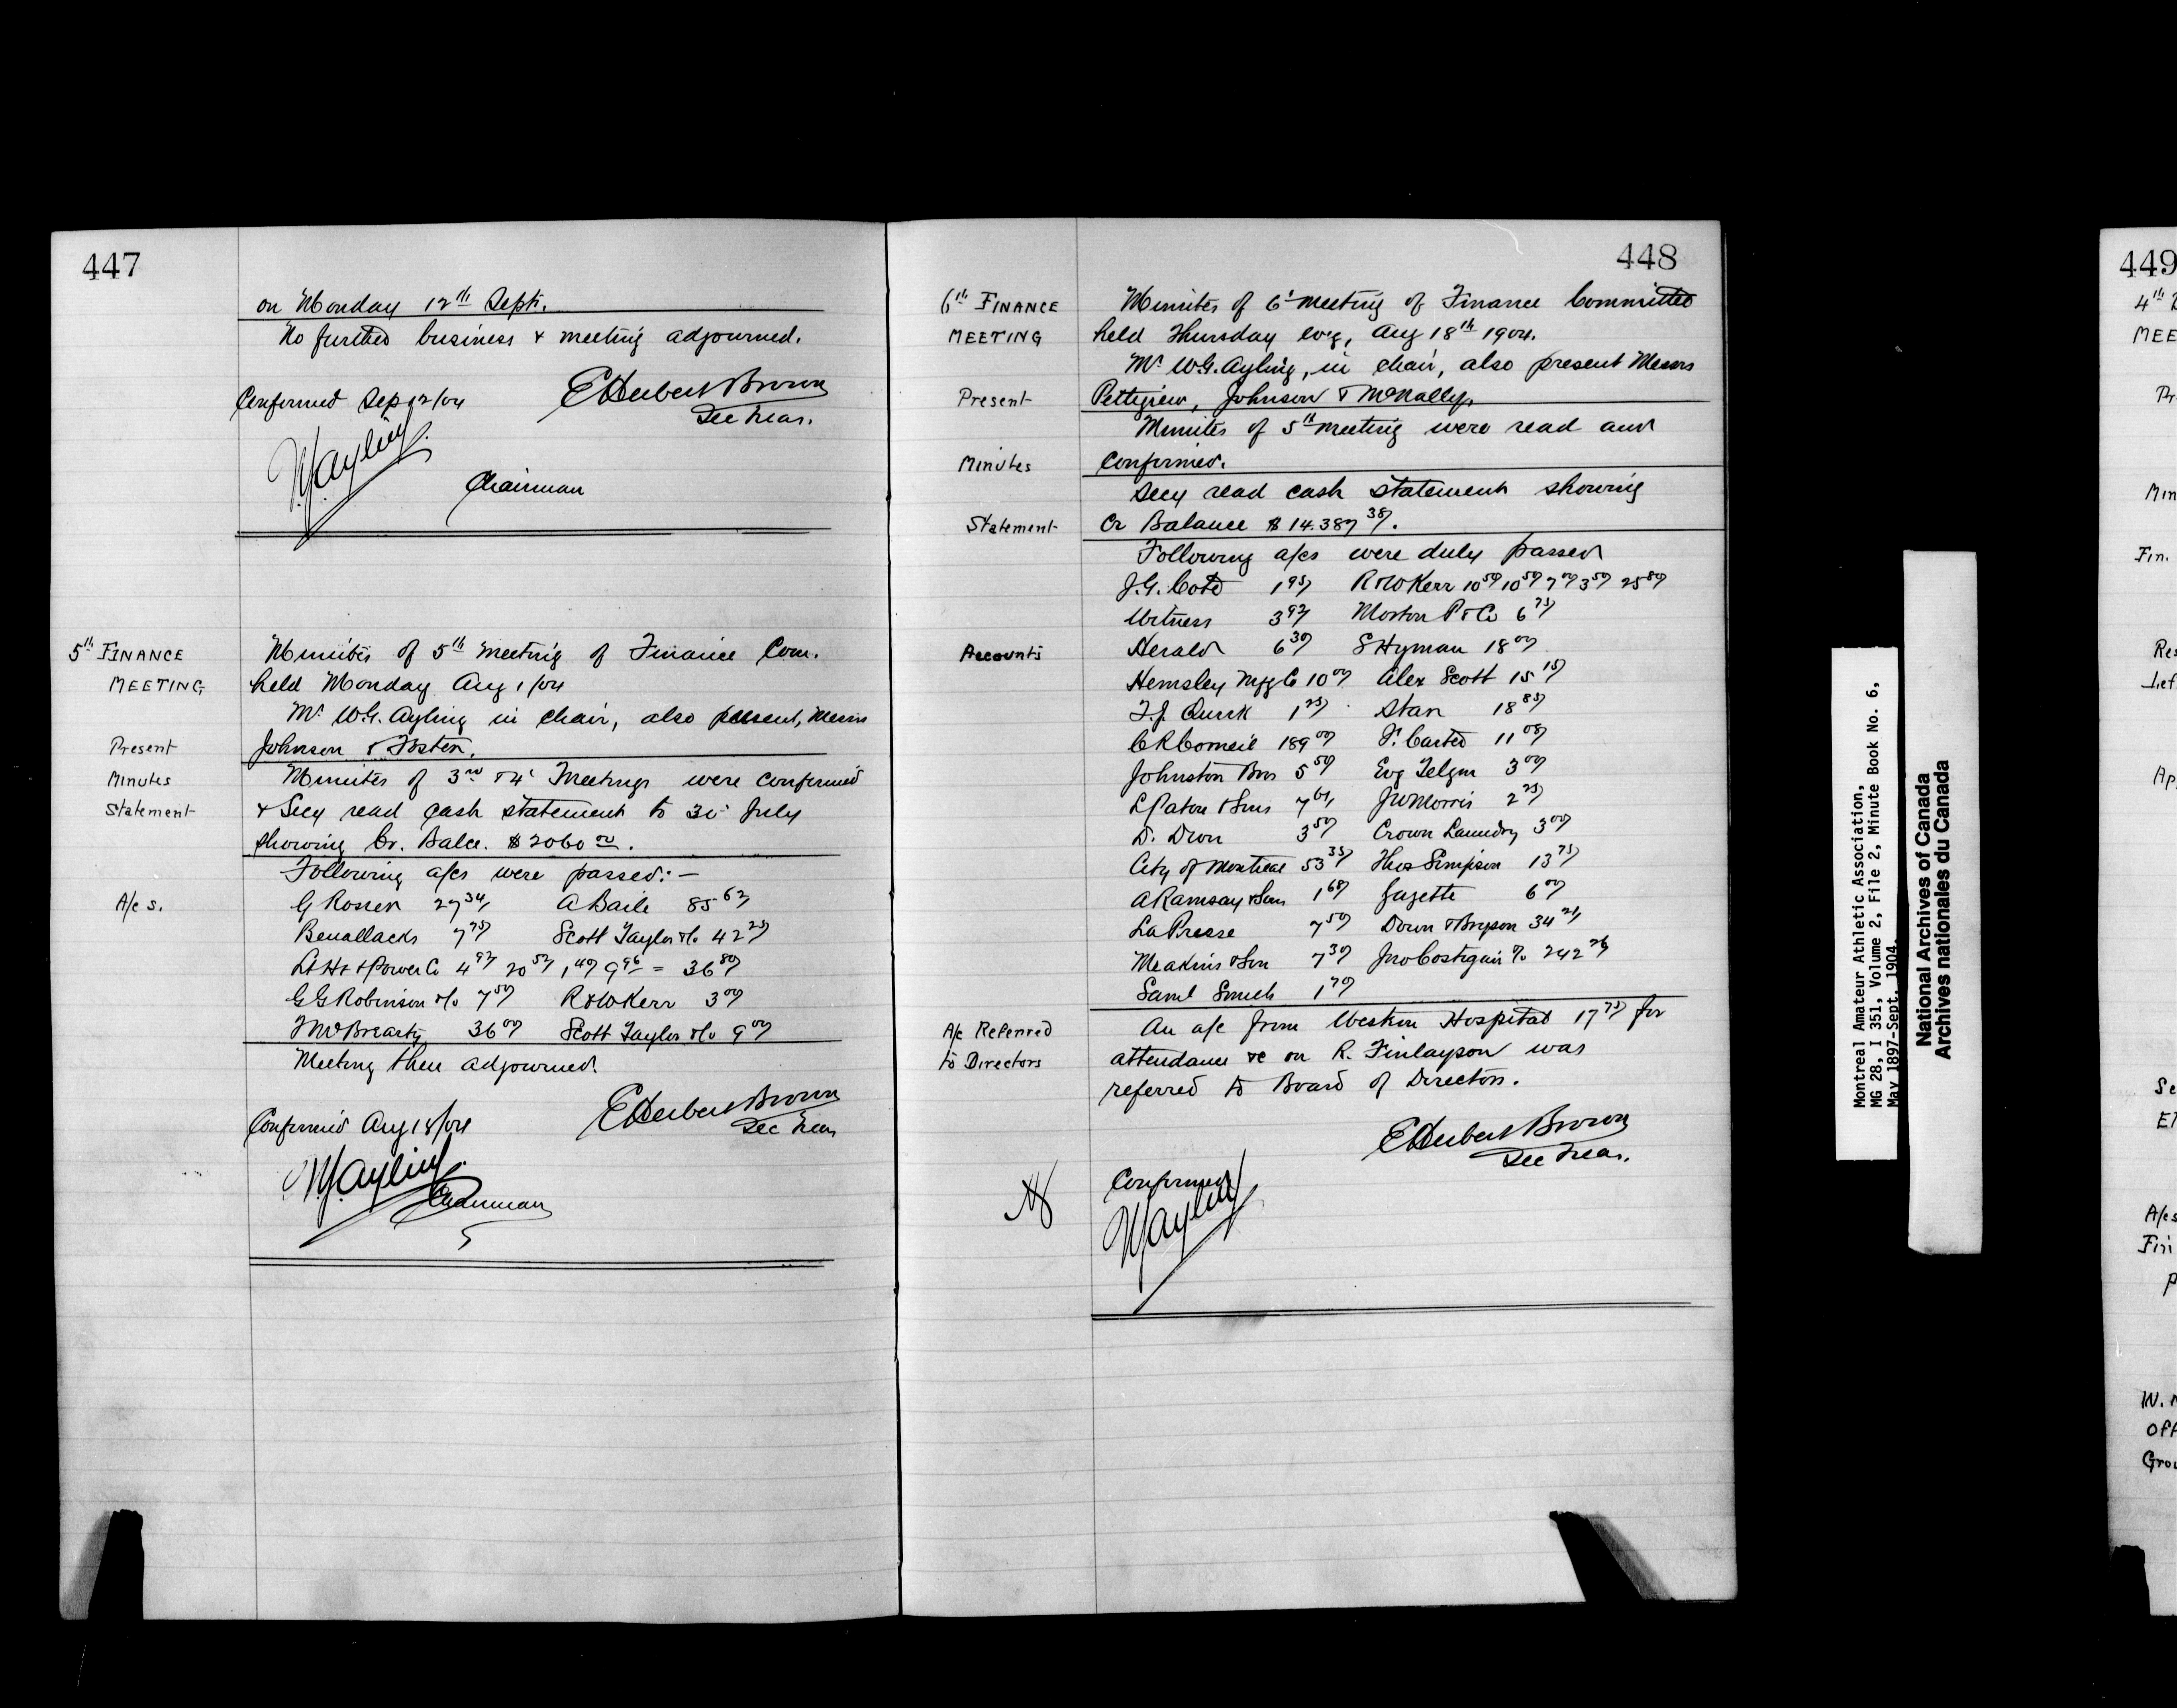 447
on Monday 12th Sept.
No further business & meeting adjourned.
Confirmed Sep 12/04 E Herbert Brown
Sec Treas.
W G Ayling
Chairman
5th FINANCE Minutes of 5th Meeting of Finance Com.
MEETING held Monday Aug 1/04
Mr W.G. Ayling in chair, also present, Messrs
Present Johnson & Foster.
Minutes Minutes of 3rd & 4' Meetings were confirmed
Statement & Secy read cash statement to 30' July
showing Cr. Balce. $2060 00.
Following a/cs were passed:—
A/c s. G Rosser 27 34 A Baile 85 62
Benallacks 7 75 Scott Taylor & Co 42 25
L H & Power Co 4 92 20 52 1 40 9 96 = 36 80
G G Robinson & Co 7 50 R & W Kerr 3 00
T McBrearty 36 00 Scott Taylor & Co 9 00
Meeting then adjourned.
Confirmed Aug 18/04 E Herbert Brown
Sec Treas
W G Ayling
Chairman
448
6th FINANCE Minutes of 6' meeting of Finance Committee
MEETING held Thursday evg, Aug 18th 1904.
Mr W.G. Ayling, in chair, also present Messrs
Present Pettigrew, Johnson & McNally.
Minutes of 5th meeting were read and
Minutes confirmed.
Secy read cash statement showing
Statement Cr Balance $14.387 38.
Following a/cs were duly passed
J.G. Coto 1 95 R & W Kerr 10 50 10 50 7 00 3 50 25 80
Witness 3 92 Morton P & Co 6 75
Accounts Herald 6 30 S Hyman 18 00
Hemsley Mfg Co 10 00 Alex Scott 15 15
T.J. Quirk 1 25 Star 18 85
C R Corneil 189 00 F. Carter 11 00
Johnston Bros 5 50 Evg Telgm 3 00
L Paton & Sons 7 61 J W Morris 2 25
D. Dron 3 50 Crown Laundry 3 00
City of Montreal 53 35 Thos Simpson 13 75
A Ramsay & Son 1 68 Gazette 6 00
La Presse 7 50 Down & Bryson 34 21
Meakins & Son 7 30 Jno Costigan & Co 242 26
Saml Smith 1 70
A/c Referred An a/c from Western Hospital 17 75 for
to Directors attendance &c on R. Finlayson was
referred to Board of Directors.
E Herbert Brown
Sec Treas.
Confirmed
W G Ayling
Montreal Amateur Athletic Association,
MG 28, I 351, Volume 2, File 2, Minute Book No. 6,
May 1897-Sept. 1904.
National Archives of Canada
Archives nationales du Canada
449
4th
MEE
Pr
Min
Fin.
Res
Ap
Se
El
A/cs
Fin
P
W.
Off
Grou